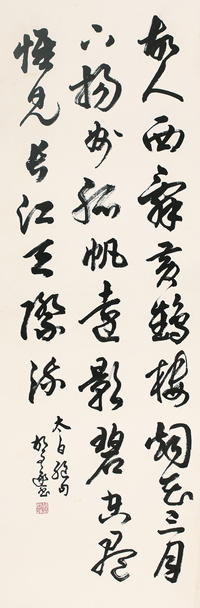 故人西辭黃鶴樓烟花三月
下揚州孤帆遠影碧空盡
惟見長江天際流
太白絕句
胡問遂書